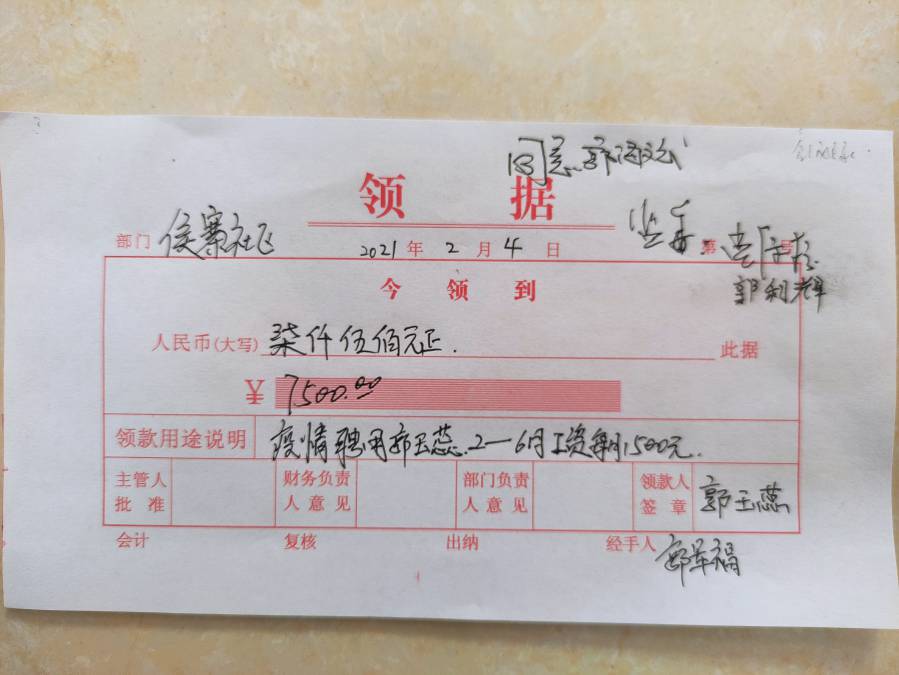 同意
领 据
监委
部门 侯寨社区 2021 年 2 月 4 日 第 号
郭利辉
今 领 到
人民币(大写) 柒仟伍佰元正. 此据
¥ 7500.00
领款用途说明 疫情聘用郭玉蕊.2—6月工资每月1500元.
主管人批准 财务负责人意见 部门负责人意见 领款人签章 郭玉蕊
会计 复核 出纳 经手人 郭军福